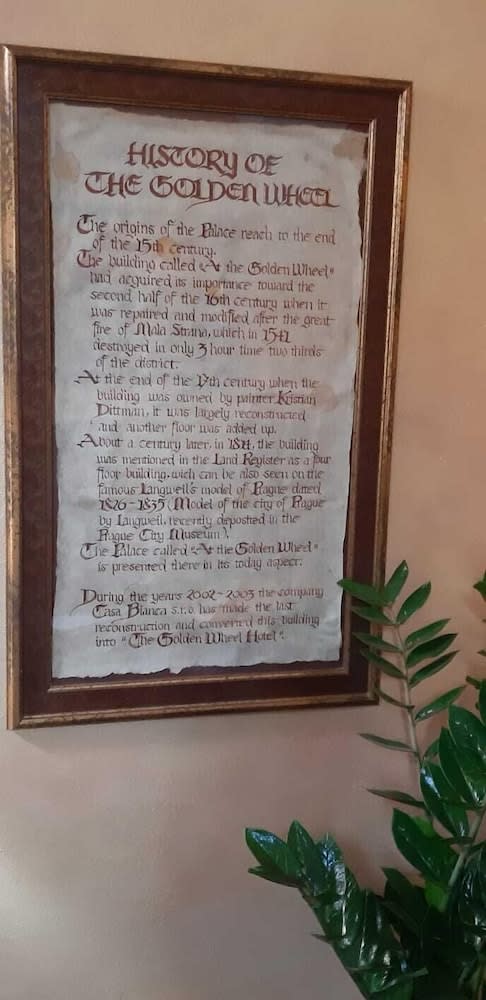 HISTORY OF
THE GOLDEN WHEEL
The origins of the Palace reach to the end
of the 15th century.
The building called «At the Golden Wheel"
had acquired its importance toward the
second half of the 16th century when it
was repaired and modified after the great
fire of Mala Strana, which in 1541
destroyed in only 3 hour time two thirds
of the district.
At the end of the 17th century when the
building was owned by painter Kristian
Dittman, it was largely reconstructed
and another floor was added up.
About a century later, in 1811, the building
was mentioned in the Land Register as a four
floor building, wich can be also seen on the
famous Langweil's model of Prague dated
1826-1835 (Model of the city of Prague
by Langweil, recently deposited in the
Prague City Museum).
The Palace called «At the Golden Wheel"
is presented there in its today aspect.
During the years 2002-2003 the company
Casa Blanca s.r.o. has made the last
reconstruction and converted this building
into "The Golden Wheel Hotel".